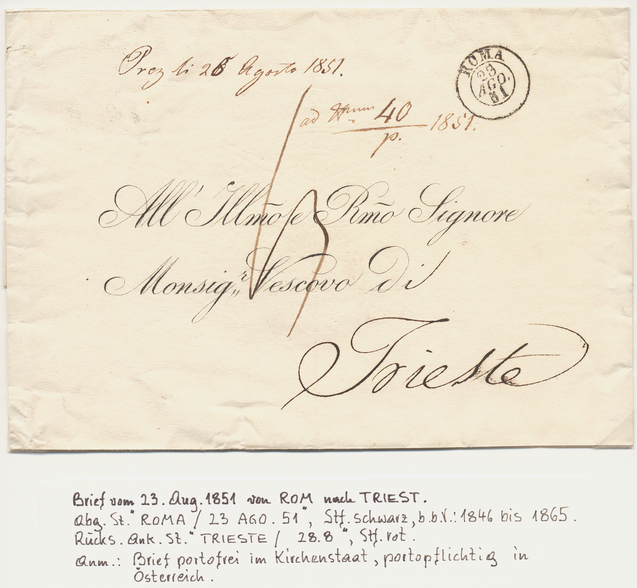 ROMA
23
AGO.
51
Prez li 28 Agosto 1851.
ad Num 40/p. 1851.
All' Illmo e Rmo Signore
Monsigr. Vescovo Di
Trieste
Brief vom 23. Aug. 1851 von ROM nach TRIEST.
Abg. St." ROMA / 23 AGO. 51", Stf. schwarz, b.b.V.: 1846 bis 1865.
Rücks. Ank. St." TRIESTE / 28.8", Stf. rot.
Anm.: Brief portofrei im Kirchenstaat, portopflichtig in
Österreich.